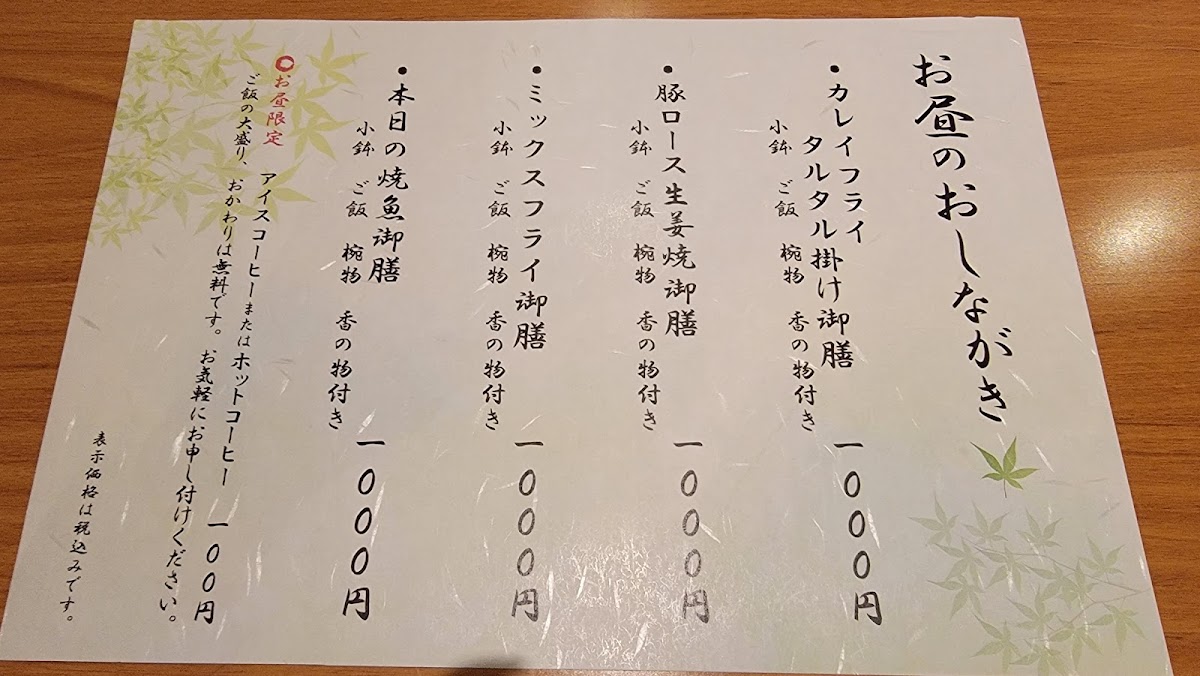 お昼のおしながき
・カレイフライ
タルタル掛け御膳
一〇〇〇円
小鉢 ご飯 椀物 香の物付き
・豚ロース生姜焼御膳
一〇〇〇円
小鉢 ご飯 椀物 香の物付き
・ミックスフライ御膳
一〇〇〇円
小鉢 ご飯 椀物 香の物付き
・本日の焼魚御膳
一〇〇〇円
小鉢 ご飯 椀物 香の物付き
○お昼限定
アイスコーヒーまたはホットコーヒー 一〇〇円
ご飯の大盛り、おかわりは無料です。お気軽にお申し付けください。
表示価格は税込みです。